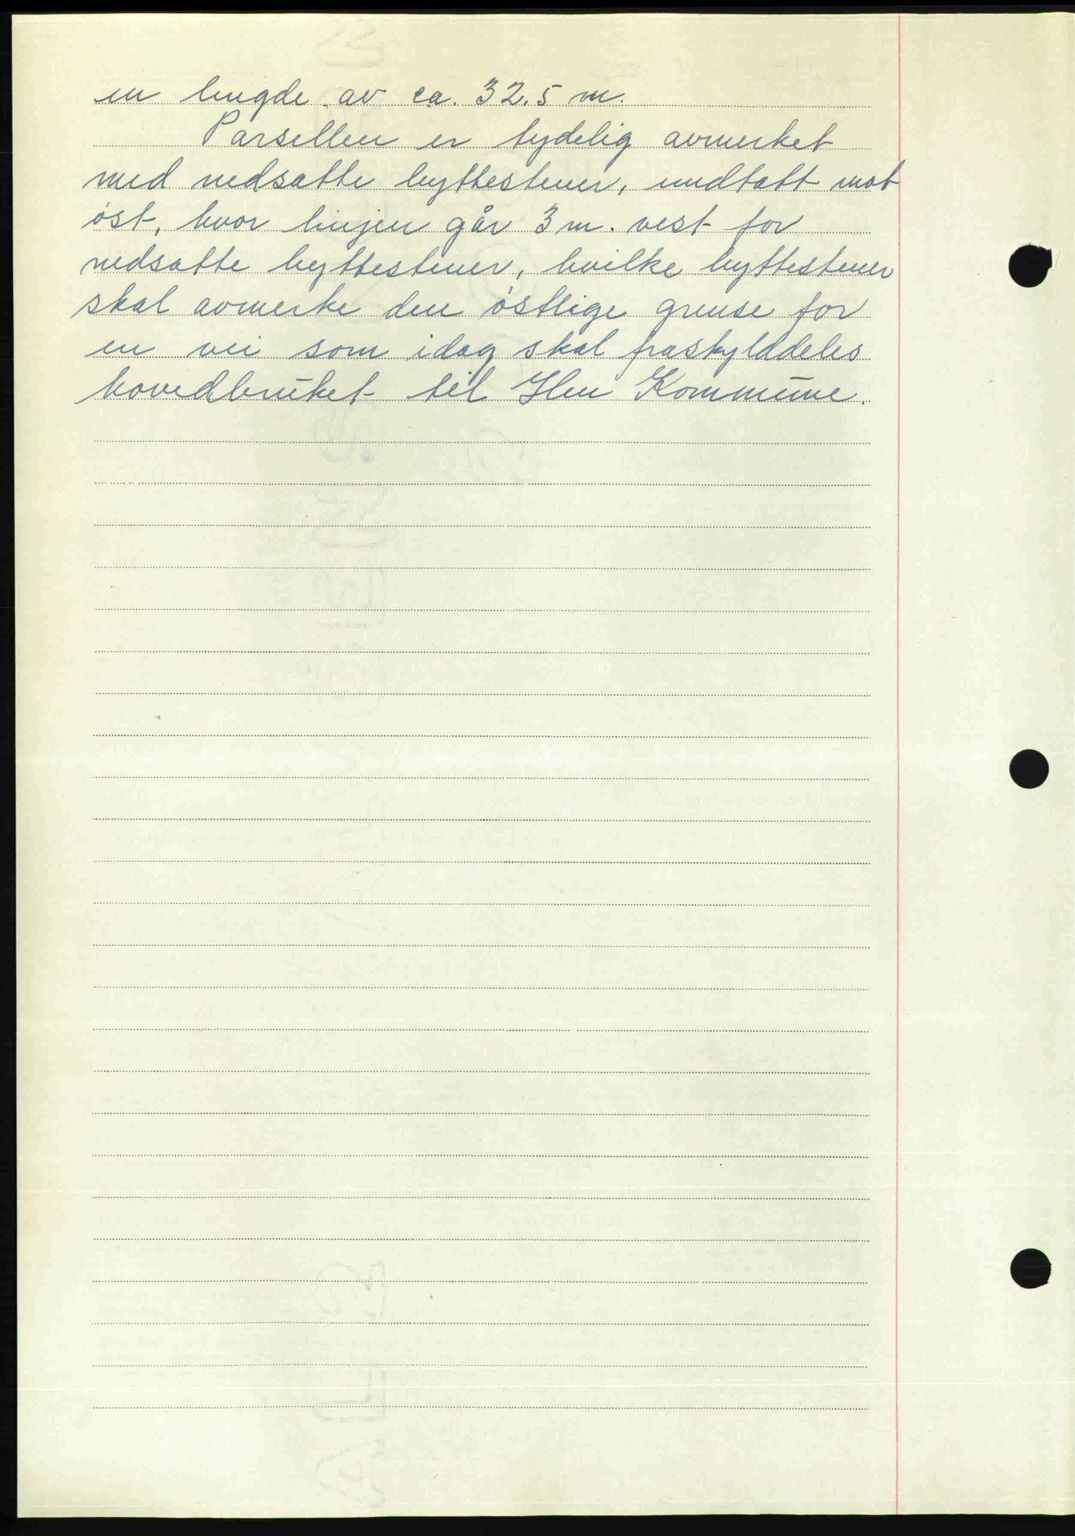 en lengde av ca. 32.5 m.
Parsellen er tydelig avmerket
med nedsatte byttestener, undtatt mot
öst, hvor linjen går 3 m. vest for
nedsatte byttestener, hvilke byttestener
skal avmerke den östlige grense for
en vei som idag skal fraskylddeles
hovedbruket til Ilen Kommune.